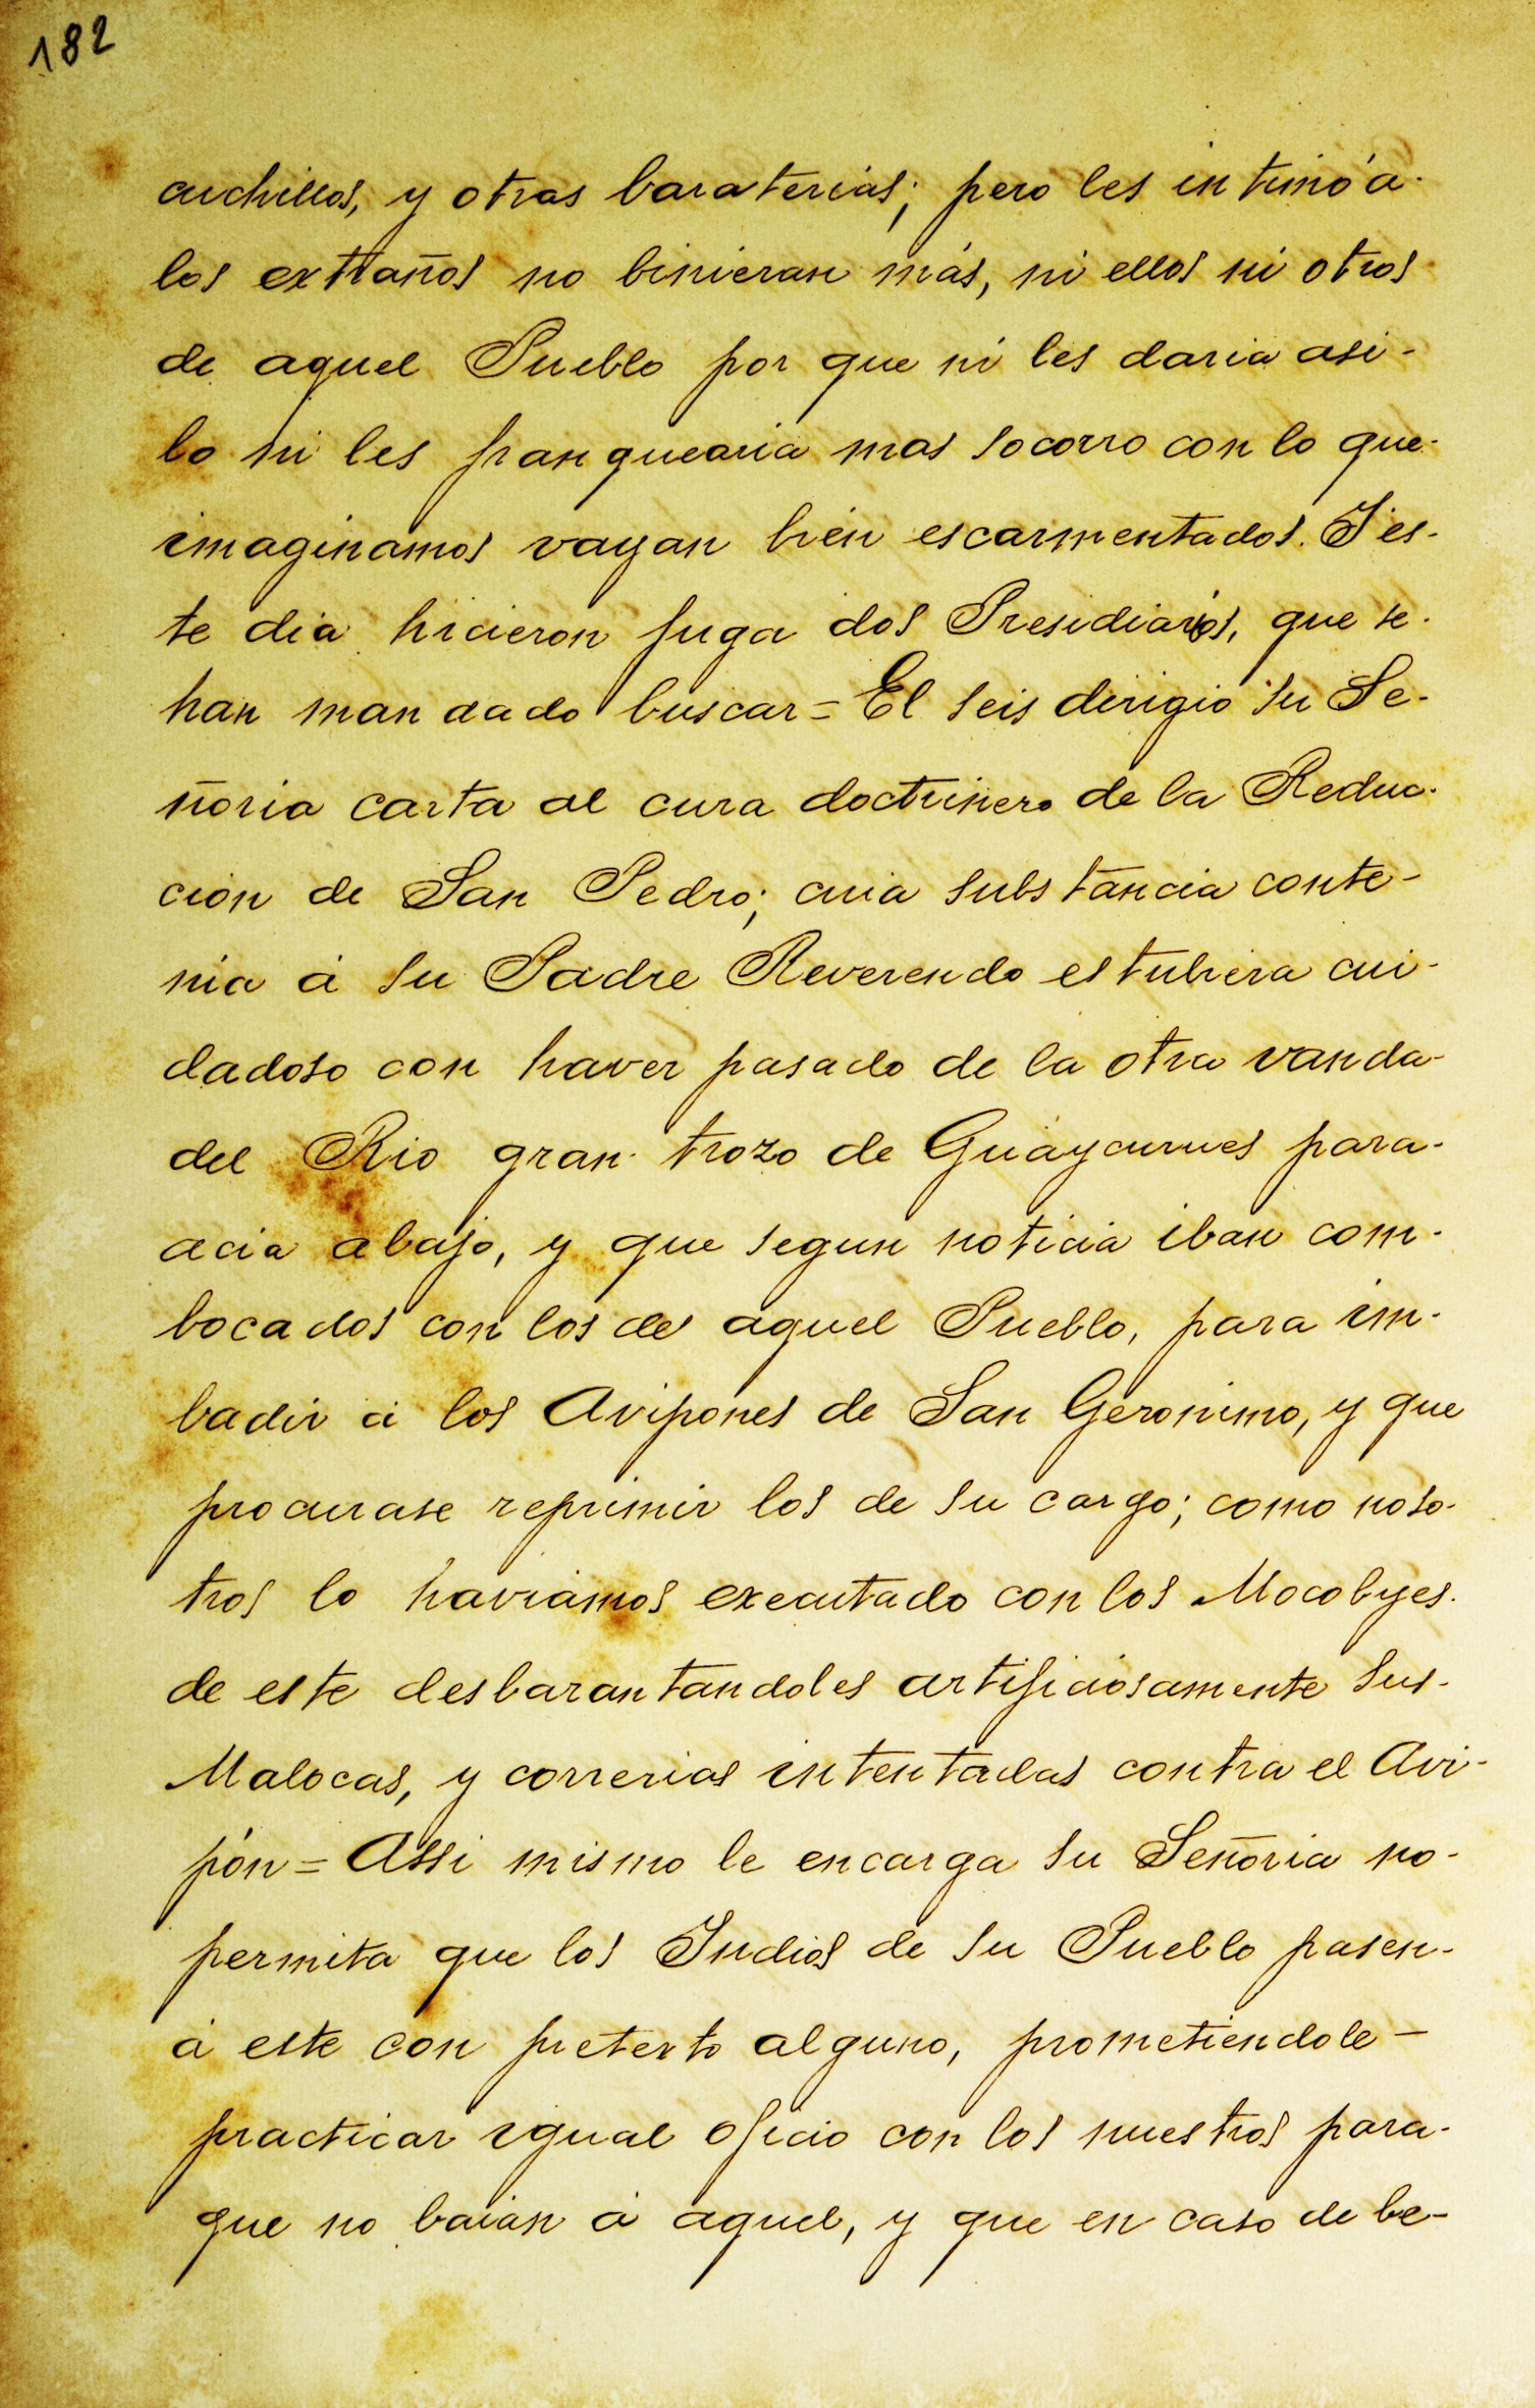 182
cuchillos, y otras baraterias; pero les intimó a-
los extraños no binieran más, ni ellos ni otros-
de aquel Pueblo por que ni les daria asi-
lo ni les franquearia mas socorro con lo que-
imaginamos vayan bien escarmentados. I es-
te dia hicieron fuga dos Presidiarios, que se-
han mandado buscar = El seis dirigió su Se-
ñoria carta al cura doctrinero de la Reduc-
cion de San Pedro; cuia substancia conte-
nia á su Padre Reverendo estubiera cui-
dadoso con haver pasado de la otra vanda-
del Rio gran trozo de Guaycurues para-
acia abajo, y que segun noticia iban com-
bocados con los de aquel Pueblo, para im-
badir á los Avipones de San Geronimo, y que
procurase reprimir los de su cargo; como noso-
tros lo haviamos executado con los Mocobyes.
de este desbarantandoles artificiosamente sus-
Malocas, y correrias intentadas contra el Avi-
pón = Assi mismo le encarga su Señoria no-
permita que los Indios de su Pueblo pasen-
á este con pretexto alguno, prometiendole-
practicar igual oficio con los nuestros para-
que no baian á aquel, y que en caso de be-